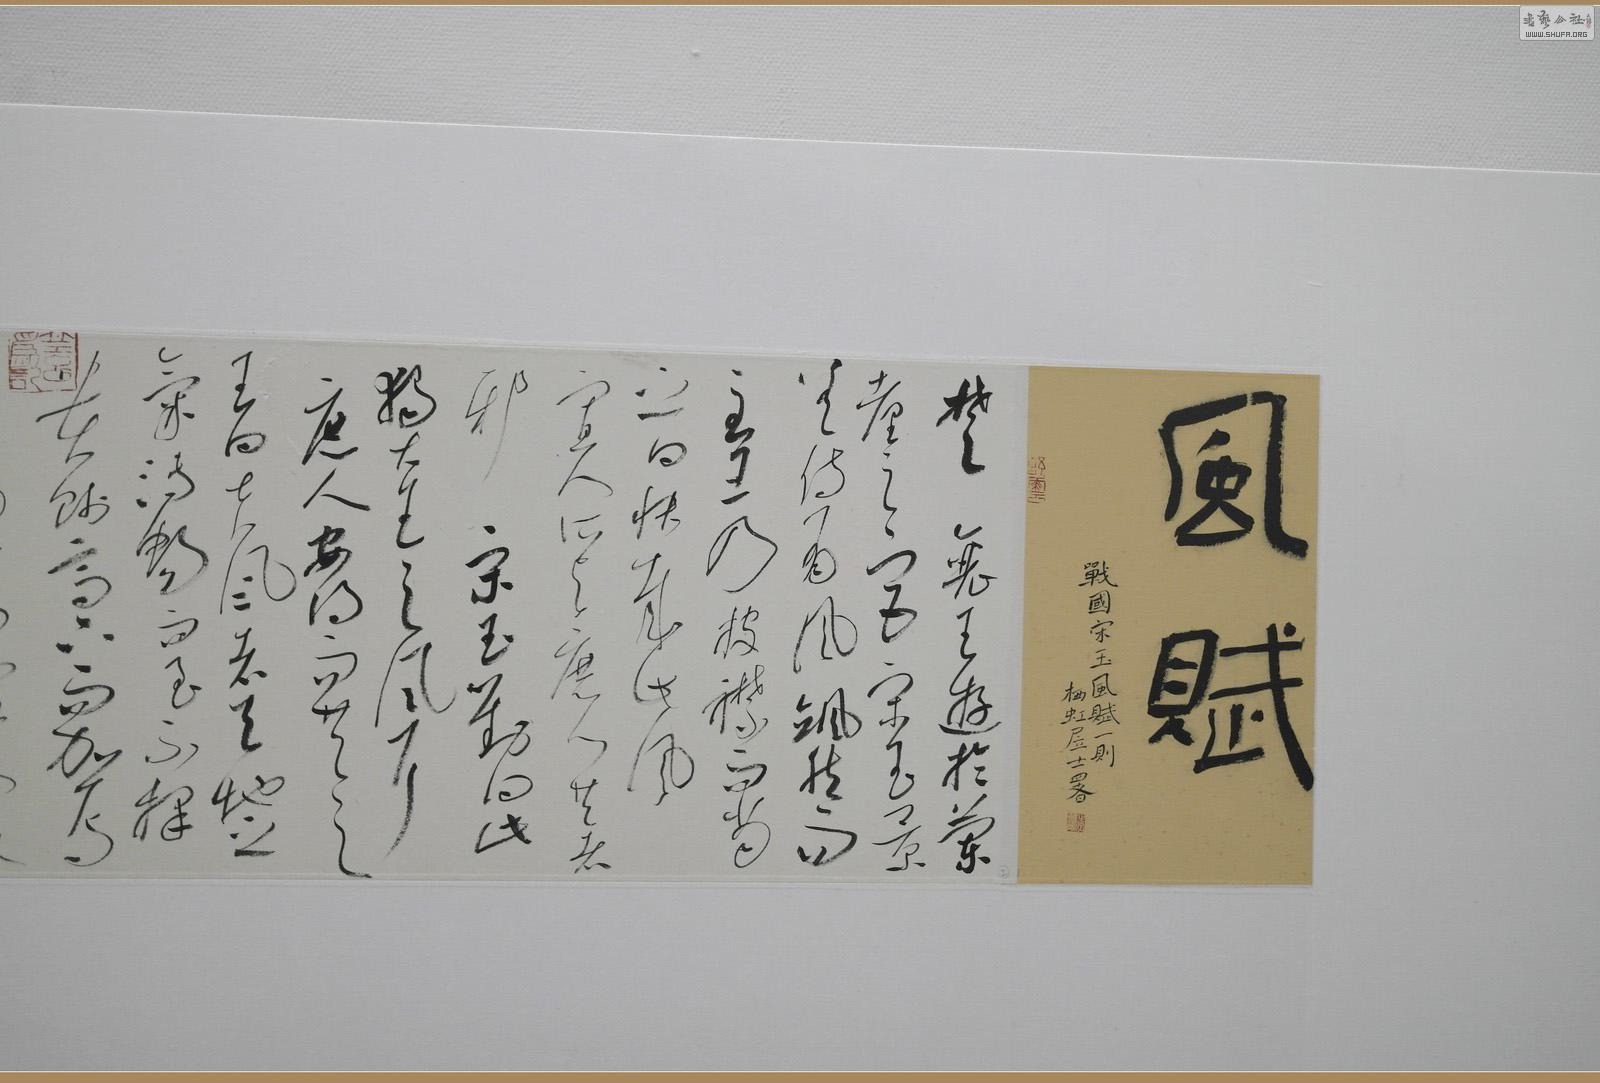 風賦
戰國宋玉風賦一則
栖虹居士署
楚襄王遊於蘭
臺之宮宋玉景
差侍有風颯然而
至王乃披襟而當
之曰快哉此風
寡人所與庶人共者
邪 宋玉對曰此
獨大王之風耳
庶人安得而共之
王曰夫風者天地之
氣溥暢而至不擇
貴賤高下而加焉
WWW.SHUFA.ORG